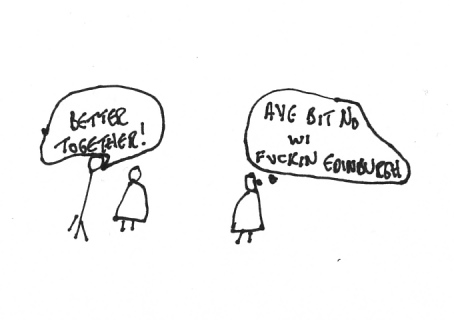 BETTER
TOGETHER!
AYE BIT NO
WI
FUCKIN EDINBURGH